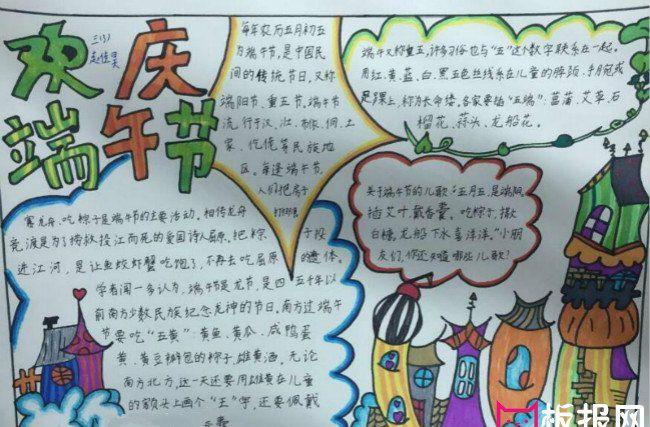 欢庆
端午节
三(3)
赵佳昊
每年农历五月初五
为端午节,是中国民
间的传统节日,又称
端阳节、重五节。端午节
流行于汉、壮、布依、侗、土
家、仡佬等民族地
区。每逢端午节,
人们把房子
打扫得
端午又称重五,许多习俗也与“五”这个数字联系在一起。
用红、黄、蓝、白、黑五色丝线系在儿童的脖颈、手腕或
是足踝上,称为长命缕。各家要插“五端”:菖蒲、艾草、石
榴花、蒜头、龙船花。
赛龙舟、吃粽子是端午节的主要活动。相传龙舟
竞渡是为了捞救投江而死的爱国诗人屈原。把粽子投
进江河,是让鱼蛟虾蟹吃饱了,不再去吃屈原的遗体。
学者闻一多认为,端午节是龙节,是四、五千年以
前南方少数民族纪念龙神的节日。南方过端午
节要吃“五黄”:黄鱼、黄瓜、咸鸭蛋
黄、黄豆瓣包的粽子、雄黄酒。无论
南方北方,这一天还要用雄黄在儿童
的额头上画个“王”字,还要佩戴
香囊
关于端午节的儿歌:“五月五,是端阳。
插艾叶,戴香囊。吃粽子,撒
白糖,龙船下水喜洋洋。”小朋
友们,你还知道哪些儿歌?
板报网